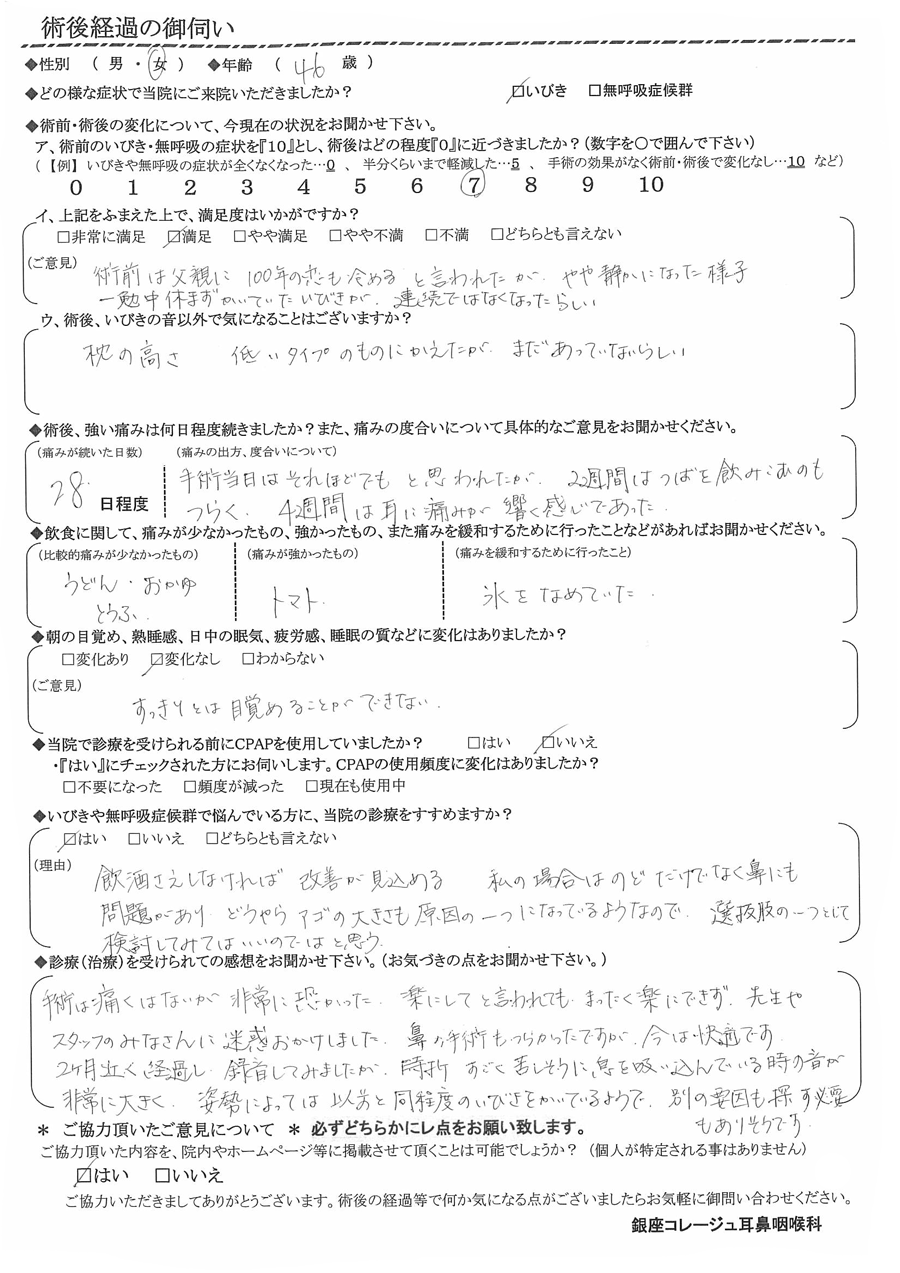 術後経過の御伺い
◆性別 ( 男 ・ 女 ) ◆年齢 ( 46 歳 )
◆どの様な症状で当院にご来院いただきましたか? ☑いびき □無呼吸症候群
◆術前・術後の変化について、今現在の状況をお聞かせ下さい。
ア、術前のいびき・無呼吸の症状を『10』とし、術後はどの程度『0』に近づきましたか?(数字を○で囲んで下さい)
(【例】いびきや無呼吸の症状が全くなくなった…0 、 半分くらいまで軽減した…5 、 手術の効果がなく術前・術後で変化なし…10 など)
0 1 2 3 4 5 6 7 8 9 10
イ、上記をふまえた上で、満足度はいかがですか?
□非常に満足 ☑満足 □やや満足 □やや不満 □不満 □どちらとも言えない
(ご意見)
術前は父親に 100年の恋も冷める と言われたが、やや静かになった様子
一晩中休まずかいていたいびきが、連続ではなくなったらしい
ウ、術後、いびきの音以外で気になることはございますか?
枕の高さ 低いタイプのものにかえたが まだあっていないらしい
◆術後、強い痛みは何日程度続きましたか?また、痛みの度合いについて具体的なご意見をお聞かせください。
(痛みが続いた日数) (痛みの出方、度合いについて)
28 日程度
手術当日はそれほどでも と思われたが、2週間はつばを飲みこむのも
つらく、4週間は耳に痛みが響く感じであった。
◆飲食に関して、痛みが少なかったもの、強かったもの、また痛みを緩和するために行ったことなどがあればお聞かせください。
(比較的痛みが少なかったもの) (痛みが強かったもの) (痛みを緩和するために行ったこと)
うどん・おかゆ
とうふ
トマト
氷をなめていた
◆朝の目覚め、熟睡感、日中の眠気、疲労感、睡眠の質などに変化はありましたか?
□変化あり ☑変化なし □わからない
(ご意見)
すっきりとは目覚めることができない。
◆当院で診療を受けられる前にCPAPを使用していましたか? □はい ☑いいえ
・『はい』にチェックされた方にお伺いします。CPAPの使用頻度に変化はありましたか?
□不要になった □頻度が減った □現在も使用中
◆いびきや無呼吸症候群で悩んでいる方に、当院の診療をすすめますか?
☑はい □いいえ □どちらとも言えない
(理由)
飲酒さえしなければ 改善が見込める 私の場合はのどだけでなく鼻にも
問題があり どうやらアゴの大きさも原因の一つになっているようなので、選択肢の一つとして
検討してみてはいいのではと思う。
◆診療(治療)を受けられての感想をお聞かせ下さい。(お気づきの点をお聞かせ下さい。)
手術は痛くはないが 非常に恐かった。楽にしてと言われても、まったく楽にできず、先生や
スタッフのみなさんに迷惑おかけしました。鼻の手術もつらかったですが、今は快適です。
2ヶ月近く経過し、録音してみましたが、時折 すごく苦しそうに息を吸い込んでいる時の音が
非常に大きく、姿勢によっては以前と同程度のいびきをかいているようで、別の要因も探す必要
もありそうです。
* ご協力頂いたご意見について * 必ずどちらかにレ点をお願い致します。
ご協力頂いた内容を、院内やホームページ等に掲載させて頂くことは可能でしょうか? (個人が特定される事はありません)
☑はい □いいえ
ご協力いただきましてありがとうございます。術後の経過等で何か気になる点がございましたらお気軽に御問い合わせください。
銀座コレージュ耳鼻咽喉科